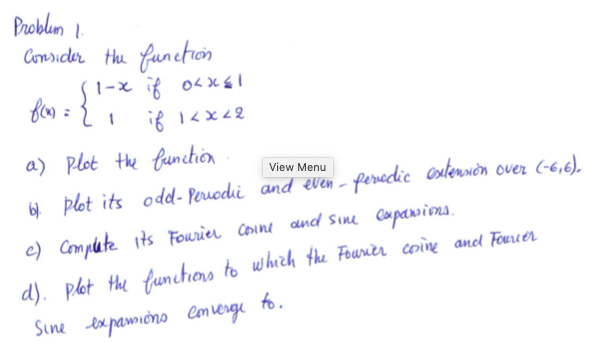 Problem 1.
Consider the function
f(x) = { 1-x if 0<x≤1
1 if 1<x<2
a) Plot the function.
View Menu
b). Plot its odd-Periodic and even-periodic extension over (-6,6).
c) Compute its Fourier cosine and sine expansions.
d). Plot the functions to which the Fourier cosine and Fourier
Sine expansions converge to.